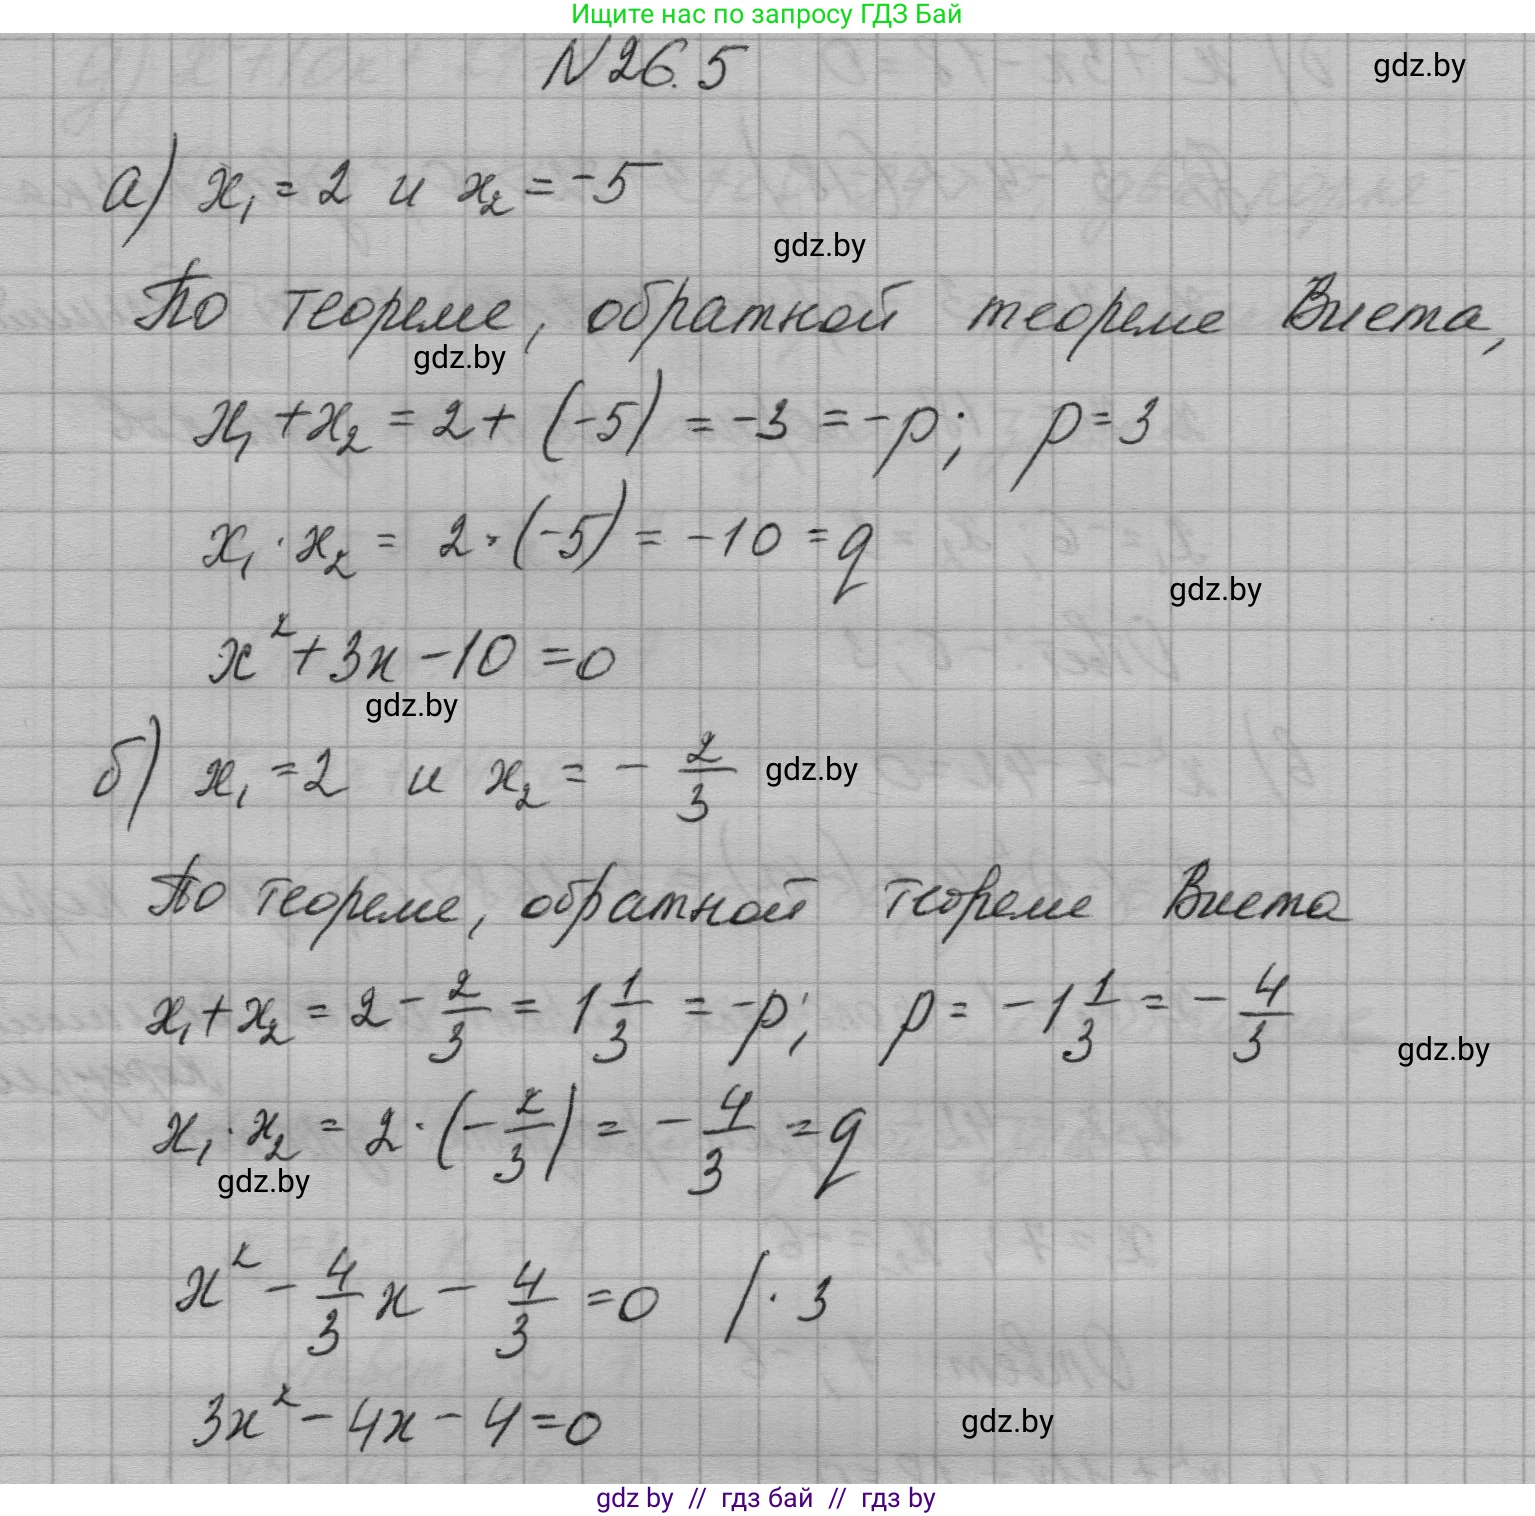 Ищите нас по запросу ГДЗ Бай
N 26.5
gdz.by
а) x₁ = 2 и x₂ = -5
gdz.by
По теореме, обратной теореме Виета,
gdz.by
x₁ + x₂ = 2 + (-5) = -3 = -p; p = 3
x₁ · x₂ = 2 · (-5) = -10 = q
gdz.by
x² + 3x - 10 = 0
gdz.by
б) x₁ = 2 и x₂ = - 2/3
gdz.by
По теореме, обратной теореме Виета
x₁ + x₂ = 2 - 2/3 = 1 1/3 = -p; p = -1 1/3 = - 4/3
gdz.by
x₁ · x₂ = 2 · (- 2/3) = - 4/3 = q
gdz.by
x² - 4/3 x - 4/3 = 0 / · 3
3x² - 4x - 4 = 0
gdz.by
gdz by // гдз бай // гдз by